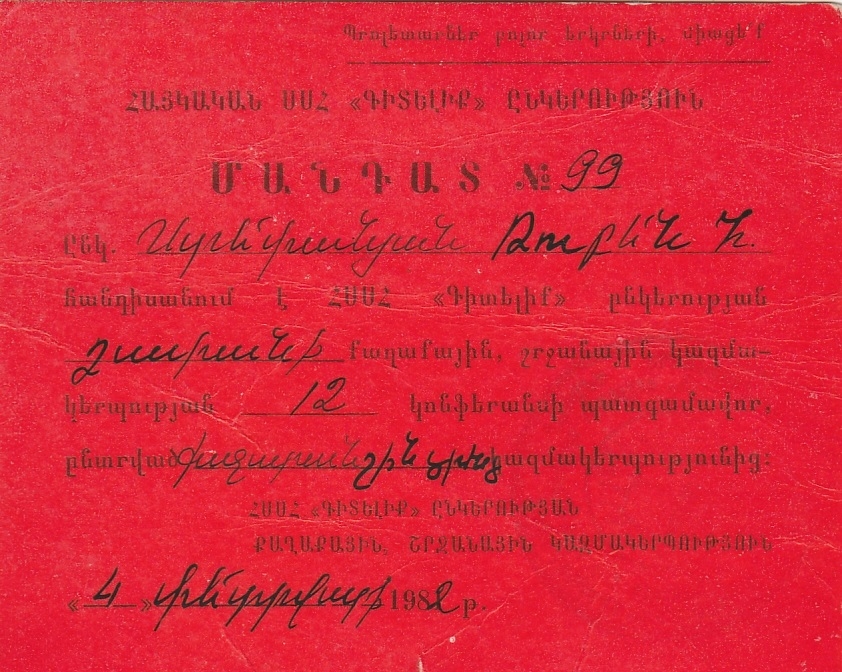 Պրոլետարներ բոլոր երկրների, միացե՛ք
ՀԱՅԿԱԿԱՆ ՍՍՀ «ԳԻՏԵԼԻՔ» ԸՆԿԵՐՈՒԹՅՈՒՆ
ՄԱՆԴԱՏ № 99
Ընկ. Ռուբեն
հանդիսանում է ՀՍՍՀ «Գիտելիք» ընկերության
քաղաքային, շրջանային կազմա–
կերպության 12 կոնֆերանսի պատգամավոր,
ընտրված կազմակերպությունից:
ՀՍՍՀ «ԳԻՏԵԼԻՔ» ԸՆԿԵՐՈՒԹՅԱՆ
ՔԱՂԱՔԱՅԻՆ, ՇՐՋԱՆԱՅԻՆ ԿԱԶՄԱԿԵՐՊՈՒԹՅՈՒՆ
«4» փետրվարի 1982 թ.